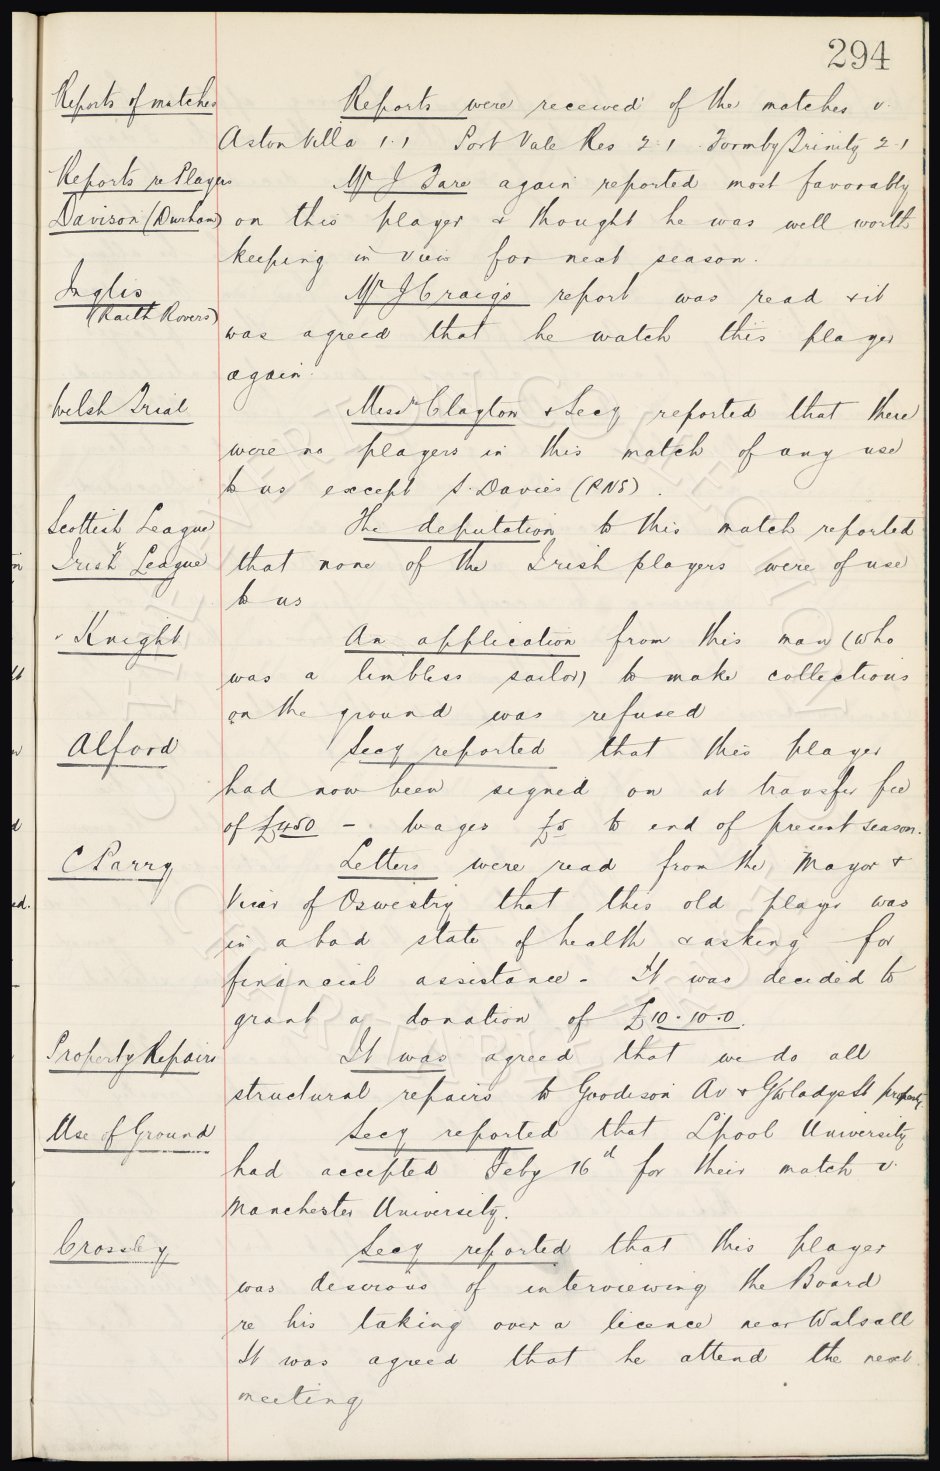 294
Reports of matches Reports were received of the matches v.
Aston Villa 1.1 Port Vale Res 2.1 Formby Trinity 2.1
Reports re Players Mr J Tare again reported most favorably
Davison (Durham) on this player & thought he was well worth
keeping in view for next season.
Inglis Mr J Craig's report was read & it
(Raith Rovers) was agreed that he watch this player
again.
Welsh Trial Messrs Clayton & Secy reported that there
were no players in this match of any use
to us except S. Davies (PNE).
Scottish League The deputation to this match reported
v
Irish League that none of the Irish players were of use
to us
Knight An application from this man (who
was a limbless sailor) to make collections
on the ground was refused
Alford Secy reported that this player
had now been signed on at transfer fee
of £450 - Wages £5 to end of present season.
C Parry Letters were read from the Mayor &
Vicar of Oswestry that this old player was
in a bad state of health & asking for
financial assistance - It was decided to
grant a donation of £10.10.0.
Property Repairs It was agreed that we do all
structural repairs to Goodison Av & Gwladys St property
Use of Ground Secy reported that L'pool University
had accepted Feby 16d for their match v.
Manchester University.
Crossley Secy reported that this player
was desirous of interviewing the Board
re his taking over a licence near Walsall
It was agreed that he attend the next
meeting